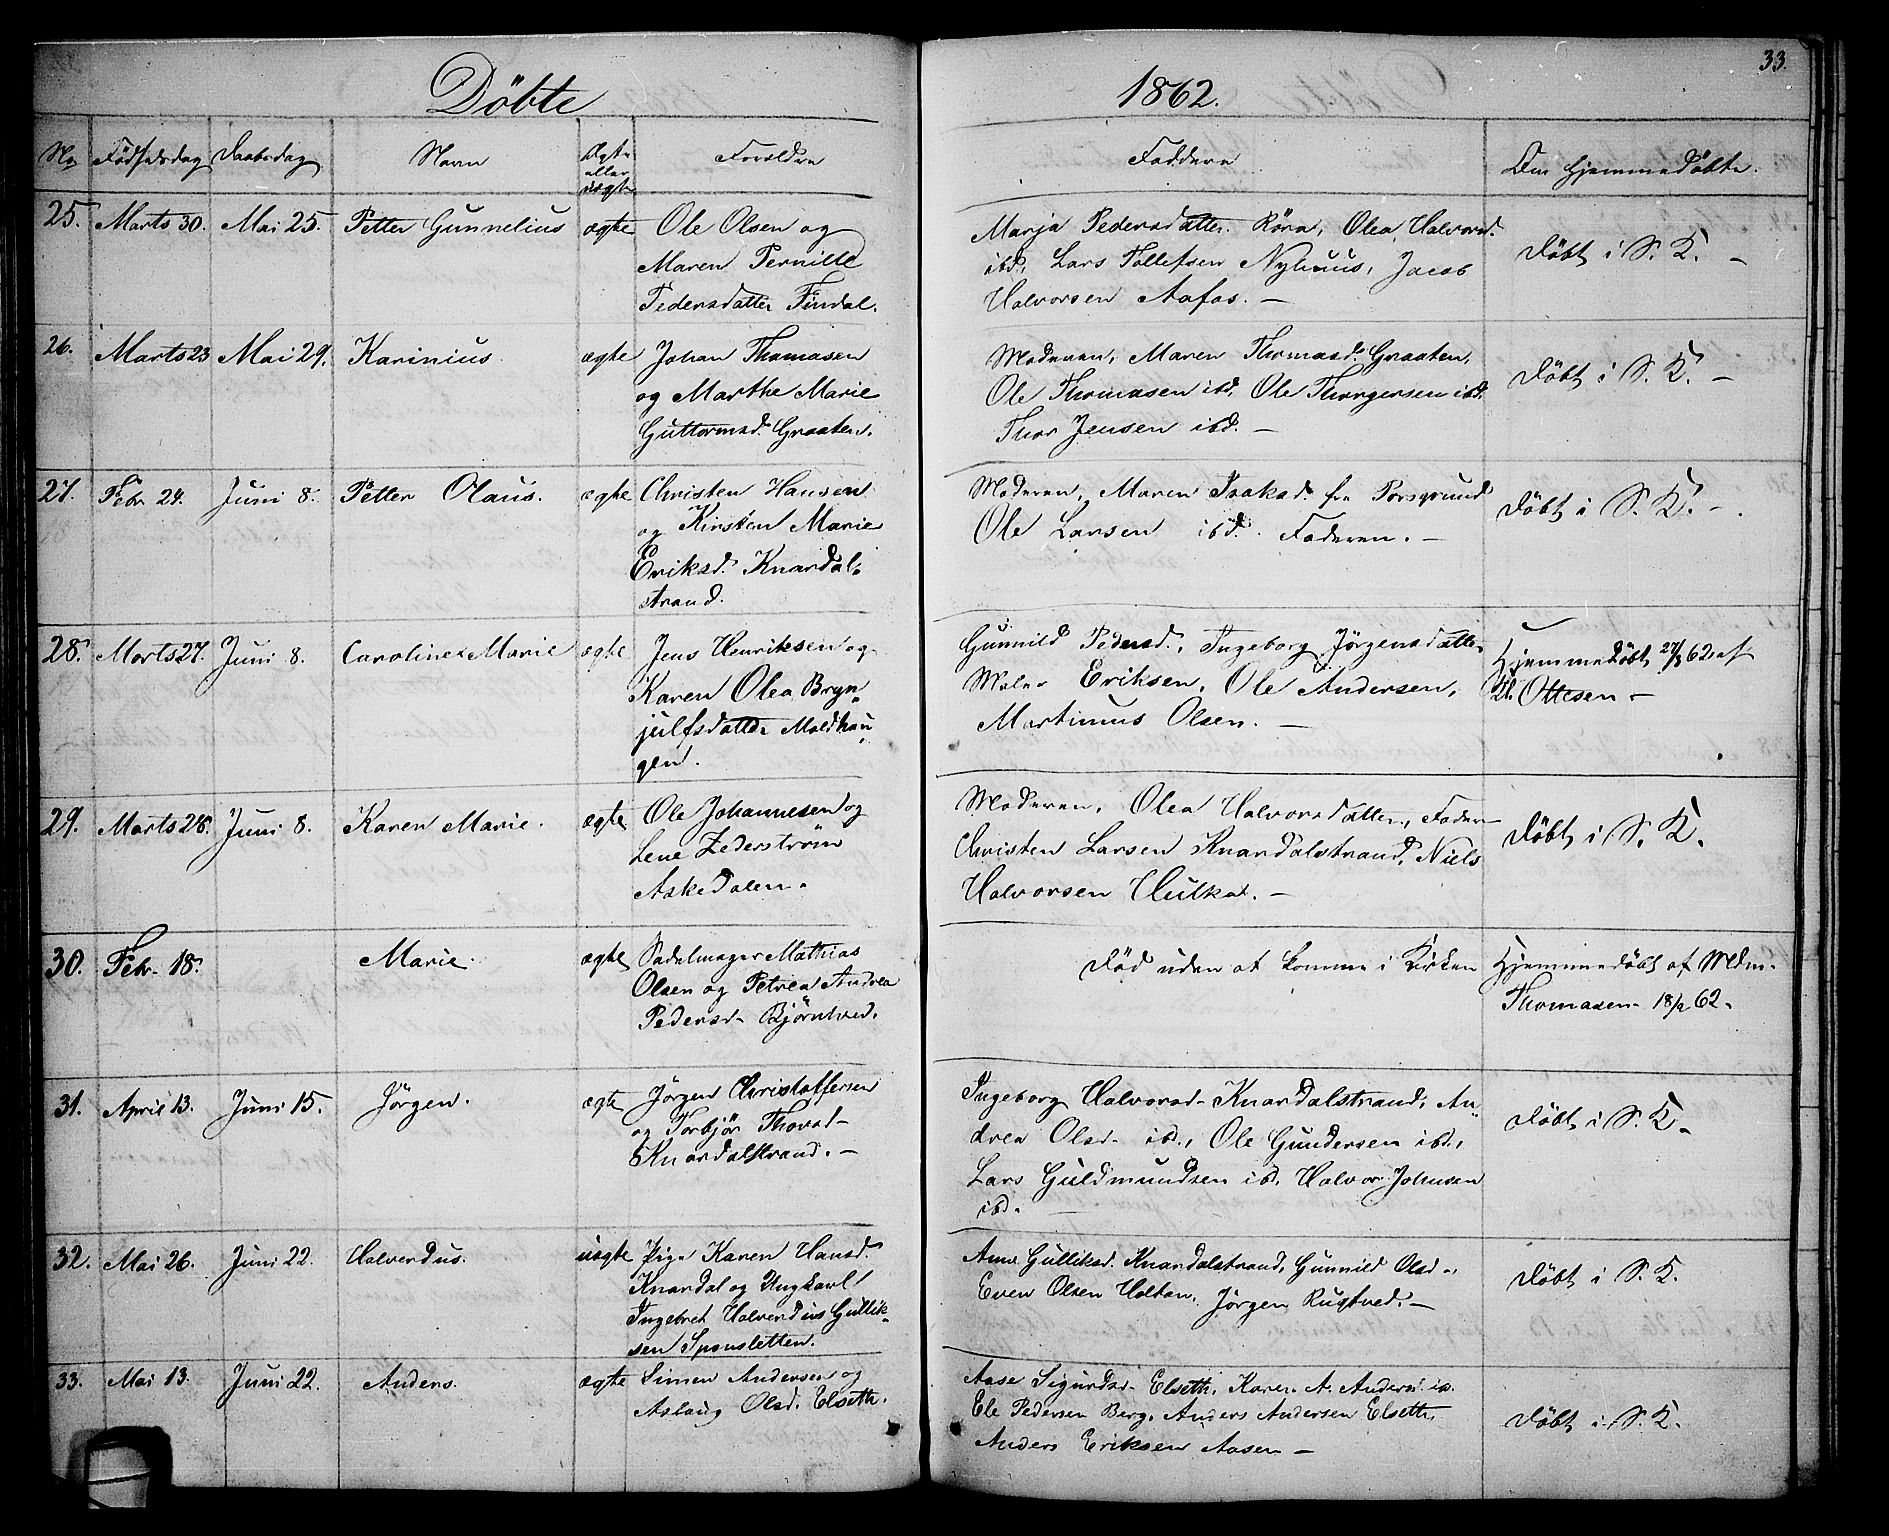 33.
Döbte 1862.
No Födselsdag Daabsdag Navn Ægte eller uægte Forældre Faddere Om hjemmedöbte.
25. Marts 30. Mai 25. Petter Gunnelius ægte Ole Olsen og
Maren Pernille
Pedersdatter Findal.
Marja Pedersdatter Röra, Olea Halvorsd.
ibd, Lars Tollefsen Nyhuus, Jacob
Halvorsen Aafos. –
Döbt i S. K. –
26. Marts 23 Mai 29. Karinius. ægte Johan Thomasen
og Marthe Marie
Guttormsd. Graaten.
Moderen, Maren Thomasd. Graaten,
Ole Thomasen ibd, Ole Thorgersen ibd.
Thor Jensen ibd. –
Döbt i S. K. –
27. Febr. 24. Juni 8. Petter Olaus. ægte Christen Hansen
og Kirsten Marie
Eriksd. Knardal-
strand.
Moderen, Maren Isaksd. fra Porsgrund
Ole Larsen ibd. Faderen. –
Döbt i S. K. –.
28. Marts 27. Juni 8. Caroline Marie ægte Jens Henriksen og
Karen Olea Bryn
julfsdatter Moldhau
gen.
Gunnild Pedersd., Ingeborg Jörgensdatter
Maler Eriksen, Ole Andersen,
Martinus Olsen. –
Hjemmedöbt 27/3 62 af
Kl. Ottesen –
29. Marts 28. Juni 8. Karen Marie. ægte Ole Johannesen og
Lene Zederström
Askedalen.
Moderen, Olea Halvorsdatter, Fader
Christen Larsen Knardalstrand, Niels
Halvorsen Hulka. –
Döbt i S. K.
30. Febr. 18. Marie. ægte Sadelmager Mathias
Olsen og Petrea Andrea
Pedersd. Björntved.
Död uden at komme i Kirken
Hjemmedöbt af Mdm.
Thomasen 18/2 62.
31. April 13. Juni 15. Jörgen. ægte Jörgen Christoffersen
og Torbjör Thovsd.
Knardalstrand. –
Ingeborg Halvorsd. Knardalstrand, An
drea Olsd. ibd., Ole Gundersen ibd.,
Lars Guldmundsen ibd, Halvor Johnsen
ibd.
Döbt i S. K.
32. Mai 26. Juni 22. Halvendus. uægte Pige Karen Hansd.
Knardal og Ungkarl
Ingebret Halvendus Gullik-
sen Sponsletten.
Anne Gulliksd. Knardalstrand, Gunnild Olsd.,
Even Olsen Holtan, Jörgen Rugtved. –
Döbt i S. K.
33. Mai 13. Juni 22. Anders. ægte Simen Andersen og
Aslaug Olsd. Elseth.
Aase Sigurdsd. Elseth, Karen A. Andersd. ib.
Ole Pedersen Berg, Anders Andersen Elseth,
Anders Eriksen Aasen –
Döbt i S. K.